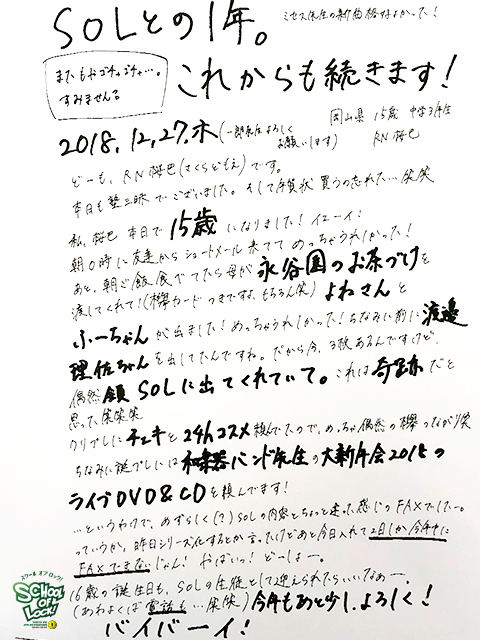 SOLとの1年。
ミセス先生の新曲格好よかった!
またもやゴチャゴチャ…。
すみません💧
これからも続きます!
2018.12.27.木(一部先生よろしくお願いします)
岡山県 15歳 中学3年生
RN 桜巴
どーも、RN桜巴(さくらどもえ)です。
本日も塾三昧でございました。そして年賀状買うの忘れた…笑笑
私、桜巴 本日で15歳になりました!イエーイ!
朝0時に友達からショートメール来ててめっちゃうれしかった!
あと、朝ご飯食べてたら母が永谷園のお茶づけを
渡してくれて!(欅カードつきですよ、もちろん笑)よねさんと
ふーちゃんが出ました!めっちゃうれしかった!ちなみに前に渡邉
理佐ちゃんを出してたんですね。だから今、3枚あるんですけど、
偶然全員SOLに出てくれていて。これは奇跡だと
思った笑笑笑
クリプレにチェキと24hコスメ頼んでたので、めっちゃ偶然の欅つながり笑
ちなみに誕プレには和楽器バンド先生の大新年会2018の
ライブDVD&CDを頼んでます!
…というわけで、めずらしく(?)SOLの内容とちょっと違った感じのFAXでしたー。
っていうか、昨日シリーズ化するとか言ったけどあと今日入れて2日しか今年中に
FAXできないじゃん! やばいっ! どーしよー。
16歳の誕生日も、SOLの生徒として迎えられたらいいなぁー。
(あわよくば電話も…笑笑)今年もあと少し、よろしく!
バイバーイ!
スクールオブロック!
SCHOOL OF LOCK!